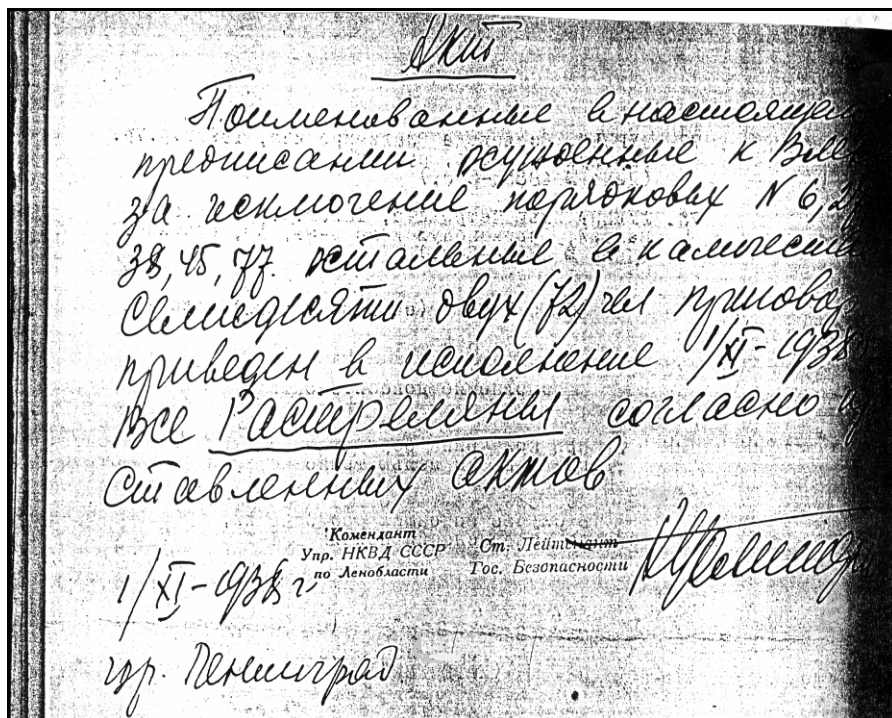 Акт
Поименованные в настоящем
предписании осужденные к В
за исключение порядковых N 6, 2
38, 45, 77. остальные в количест
Семидесяти двух (72) чел приговор
приведен в исполнение 1/XI-1938
Все Растреляны согласно
ставленных актов
Комендант
Упр. НКВД СССР
по Ленобласти
Ст. Лейтенант
Гос. Безопасности
1/XI-1938 г.
гор. Ленинград